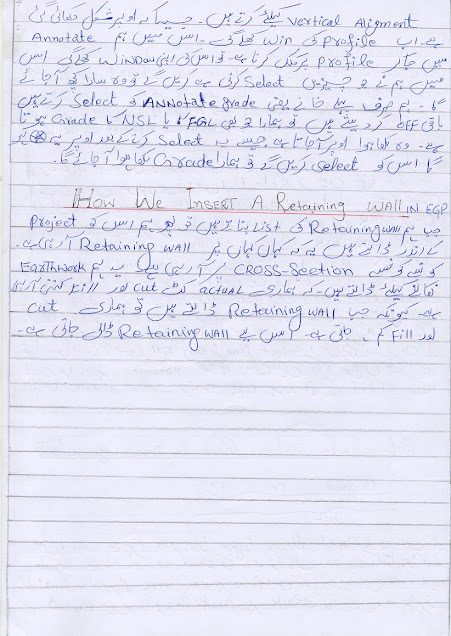 Vertical Aligment کیلئے کرتے ہیں۔ جیسا کہ اوپر شکل دکھائی گئی
ہے۔ اب Profile کی Win کھلے گی۔ اس میں ہم Annotate
میں جاکر Profile پر کلک کرنا ہے۔ تو اس کی اپنی Window کھلے گی اس
میں ہم نے جو چیزیں Select کرنی ہے کریں گے تو وہ سارا آ جائے
گا۔ ہم صرف پہلے خانے یعنی Annotate grade کو Select کرتے ہیں
باقی OFF کر دیتے ہیں تو ہمارا جو بھی FGL کا یا NSL کا Grade ہوتا
ہے۔ وہ لکھا ہوا اوپر آ جاتا ہے جیسے Select کرنے کے بعد اوپر
گا اس کو Select کریں گے تو ہمارا Grade لکھا ہوا آ جائے گا۔
How We Insert A Retaining Wall IN EGP
جب ہم Retaining wall کی List بناتے ہیں تو پھر ہم اس کو Project
کے اندر ڈالتے ہیں یہ کہ کہاں کہاں پر Retaining Wall آ رہی ہے۔
کونسے کونسے CROSS-Section پر آ رہی ہے۔ یہ ہم Earthwork
نکالنے کیلئے ڈالتے ہیں۔ کہ ہماری actual کٹ Cut اور Fill کتنی آ رہی
ہے۔ کیونکہ جب Retaining wall ڈالتے ہیں تو ہماری Cut
اور Fill کم ہو جاتی ہے۔ اس لیے Retaining Wall ڈالی جاتی ہے۔